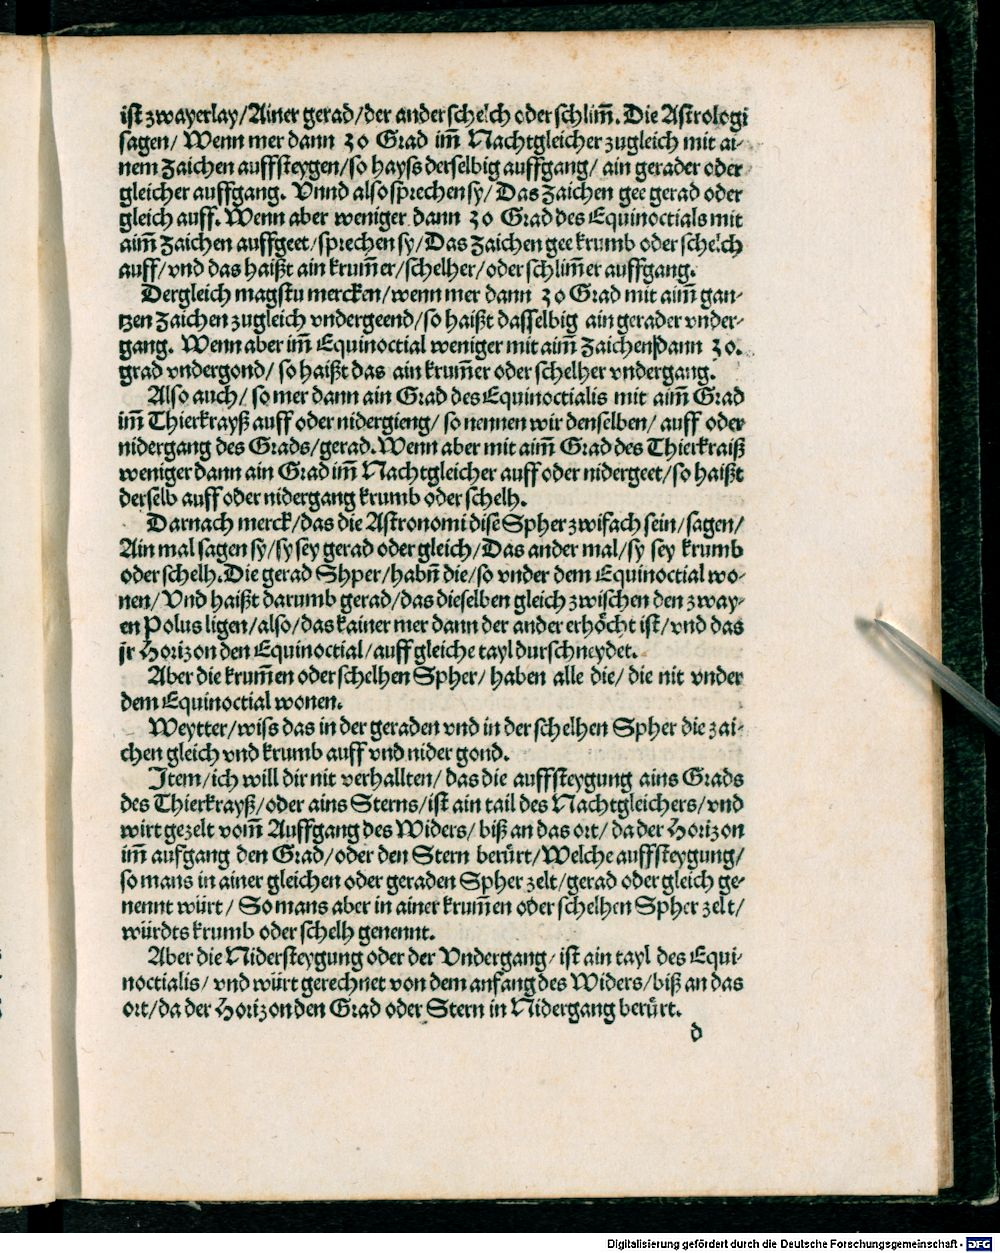 ist zwayerlay/Ainer gerad/der ander schelch oder schlim̃. Die Astrologi
sagen/ Wenn mer dann 30 Grad im̃ Nachtgleicher zugleich mit ai-
nem Zaichen auffsteygen/so hayss derselbig auffgang/ ain gerader oder
gleicher auffgang. Vnnd also sprechen sy/ Das Zaichen gee gerad oder
gleich auff. Wenn aber weniger dann 30 Grad des Equinoctials mit
aim̃ Zaichen auffgeet/sprechen sy/Das Zaichen gee krumb oder schelch
auff/vnd das haißt ain krum̃er/schelher/oder schlim̃er auffgang.
Dergleich magstu mercken/wenn mer dann 30 Grad mit aim̃ gan-
tzen Zaichen zugleich vndergeend/so haißt dasselbig ain gerader vnder-
gang. Wenn aber im̃ Equinoctial weniger mit aim̃ Zaichen dann 30.
grad vndergond/ so haißt das ain krum̃er oder schelher vndergang.
Also auch/ so mer dann ain Grad des Equinoctialis mit aim̃ Grad
im̃ Thierkrayß auff oder nidergieng/ so nennen wir denselben/ auff oder
nidergang des Grads/gerad. Wenn aber mit aim̃ Grad des Thierkraiß
weniger dann ain Grad im̃ Nachtgleicher auff oder nidergeet/so haißt
derselb auff oder nidergang krumb oder schelh.
Darnach merck/das die Astronomi dise Spher zwifach sein/sagen/
Ain mal sagen sy/sy sey gerad oder gleich/Das ander mal/sy sey krumb
oder schelh. Die gerad Shper/habñ die/so vnder dem Equinoctial wo-
nen/ Vnd haißt darumb gerad/das dieselben gleich zwischen den zway-
en Polus ligen/also/das kainer mer dann der ander erhöcht ist/vnd das
jr Horizon den Equinoctial/auff gleiche tayl durschneydet.
Aber die krum̃en oder schelhen Spher/ haben alle die/ die nit vnder
dem Equinoctial wonen.
Weytter/wiss das in der geraden vnd in der schelhen Spher die zai-
chen gleich vnd krumb auff vnd nider gond.
Item/ich will dir nit verhallten/ das die auffsteygung ains Grads
des Thierkrayß/oder ains Sterns/ist ain tail des Nachtgleichers/vnd
wirt gezelt vom̃ Auffgang des Widers/ biß an das ort/ da der Horizon
im̃ aufgang den Grad/oder den Stern berürt/Welche auffsteygung/
so mans in ainer gleichen oder geraden Spher zelt/gerad oder gleich ge-
nennt würt/ So mans aber in ainer krum̃en oder schelhen Spher zelt/
würdts krumb oder schelh genennt.
Aber die Nidersteygung oder der Vndergang/ ist ain tayl des Equi-
noctialis/ vnd würt gerechnet von dem anfang des Widers/biß an das
ort/da der Horizon den Grad oder Stern in Nidergang berürt.
d
Digitalisierung gefördert durch die Deutsche Forschungsgemeinschaft - DFG